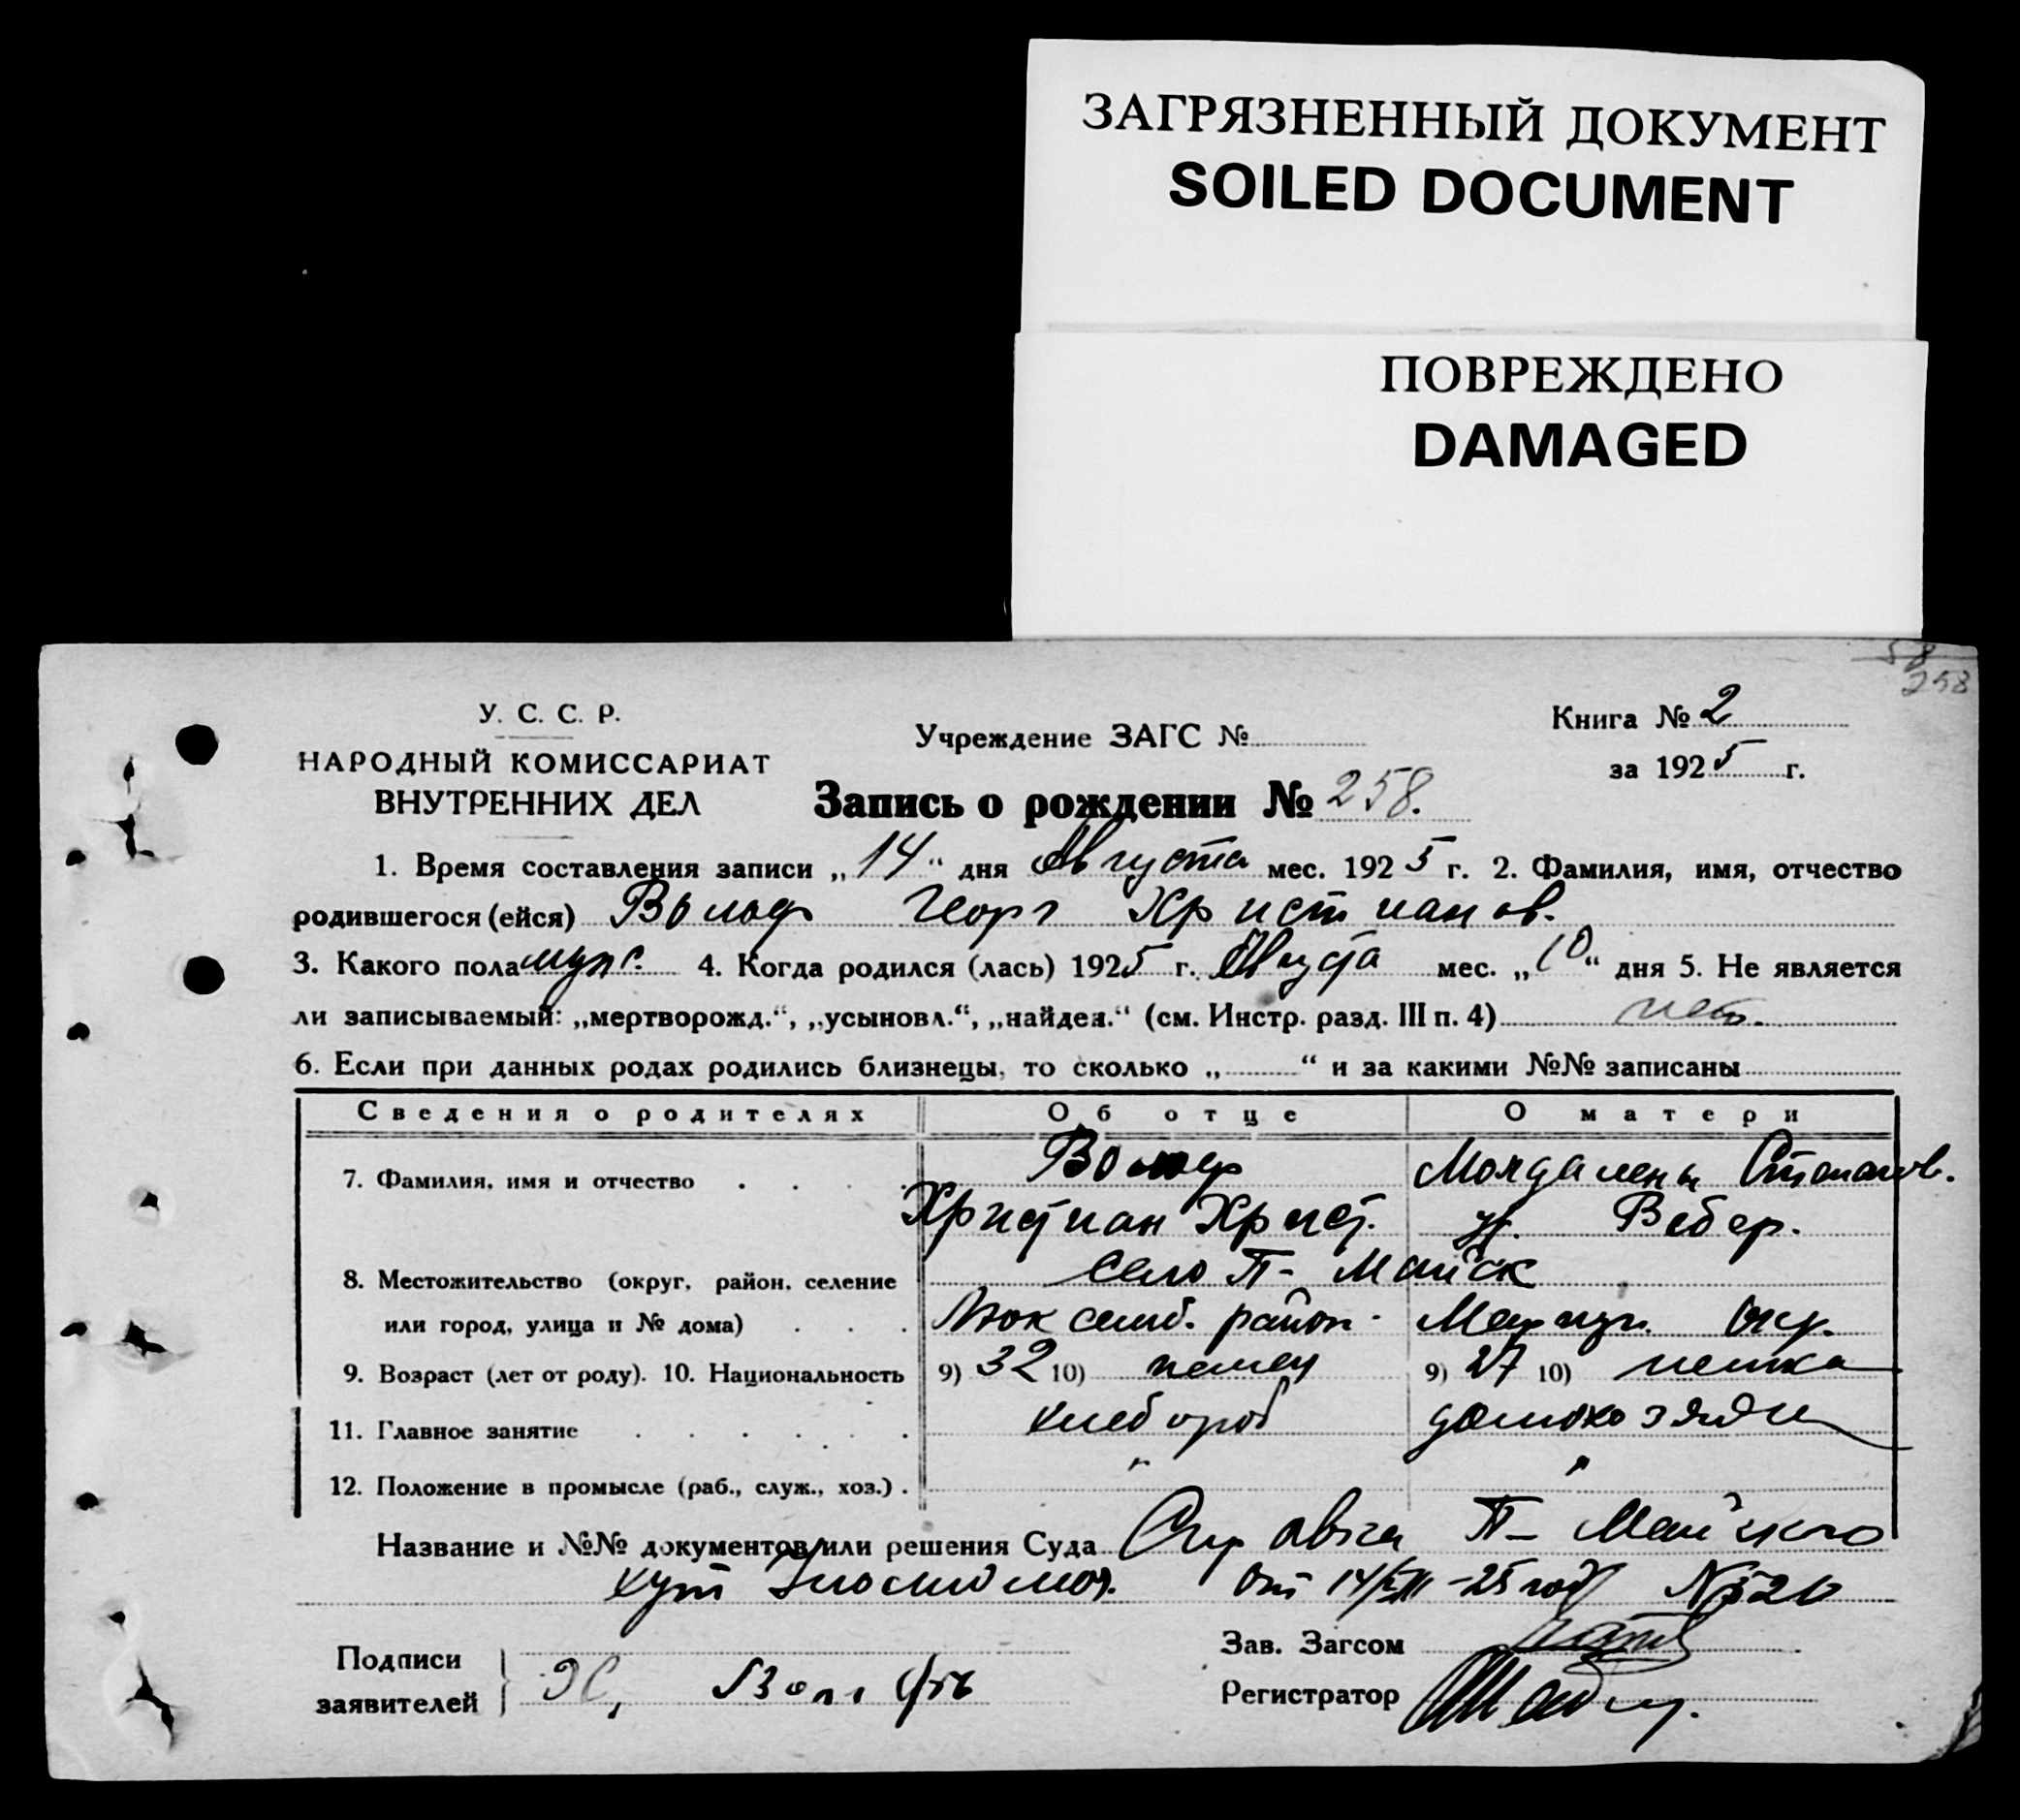 ЗАГРЯЗНЕННЫЙ ДОКУМЕНТ
SOILED DOCUMENT
ПОВРЕЖДЕНО
DAMAGED
58
258
У. С. С. Р.
НАРОДНЫЙ КОМИССАРИАТ
ВНУТРЕННИХ ДЕЛ
Учреждение ЗАГС №
Книга № 2
за 1925 г.
Запись о рождении № 258.
1. Время составления записи „14“ дня Августа мес. 1925 г. 2. Фамилия, имя, отчество
родившегося (ейся) Вольф Георг Христианов.
3. Какого пола муж. 4. Когда родился (лась) 1925 г. Августа мес. „10“ дня 5. Не является
ли записываемый: „мертворожд.“, „усыновл.“, „найден.“ (см. Инстр. разд. III п. 4) нет.
6. Если при данных родах родились близнецы, то сколько „ “ и за какими №№ записаны
Сведения о родителях Об отце О матери
7. Фамилия, имя и отчество Вольф
Христиан Христ. Вебер.
8. Местожительство (округ, район, селение село П- Майск
или город, улица и № дома) район. Окр.
9. Возраст (лет от роду). 10. Национальность 9) 32 10) немец 9) 27 10) немка
11. Главное занятие хлебороб домохозяйк
12. Положение в промысле (раб., служ., хоз.) " "
Название и №№ документов или решения Суда П- Майского
хут от 14/VIII -25 год №
Подписи
заявителей Х, Вольфъ
Зав. Загсом
Регистратор